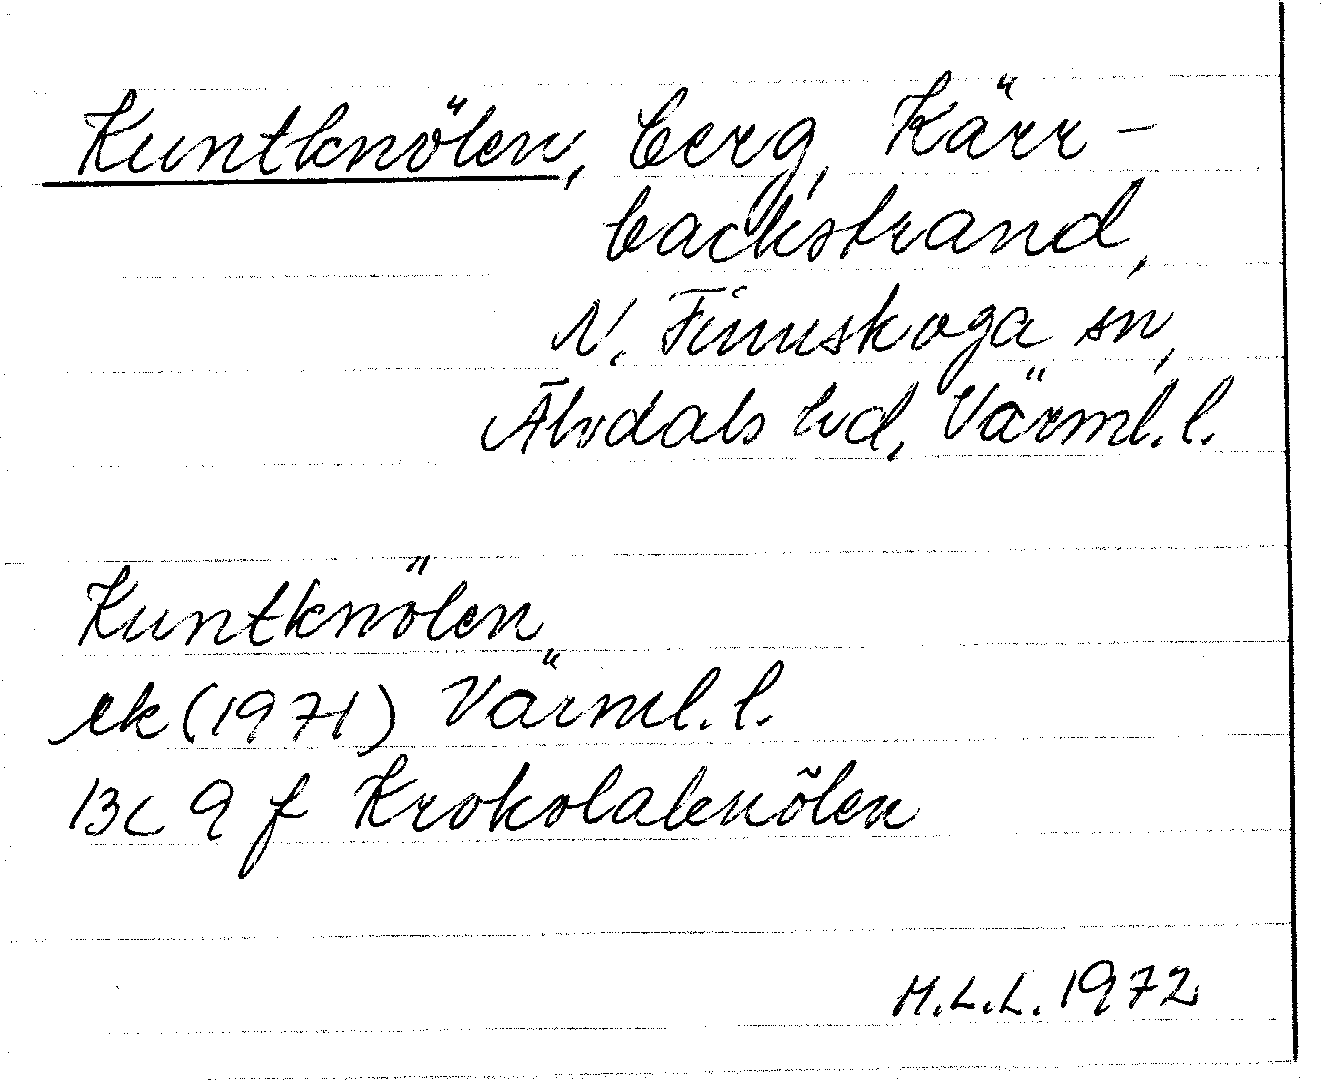 Kuntknölen, berg, Kärr-
backstrand,
N. Finnskoga sn,
Älvdals hd, Värml. l.
Kuntknölen
ek (1971) Värml. l.
13C 9 f Krokolaknölen
M.L.L. 1972